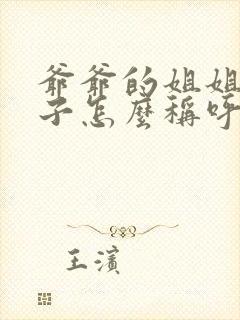 爺爺的姐姐
子怎麼稱呼
王濱